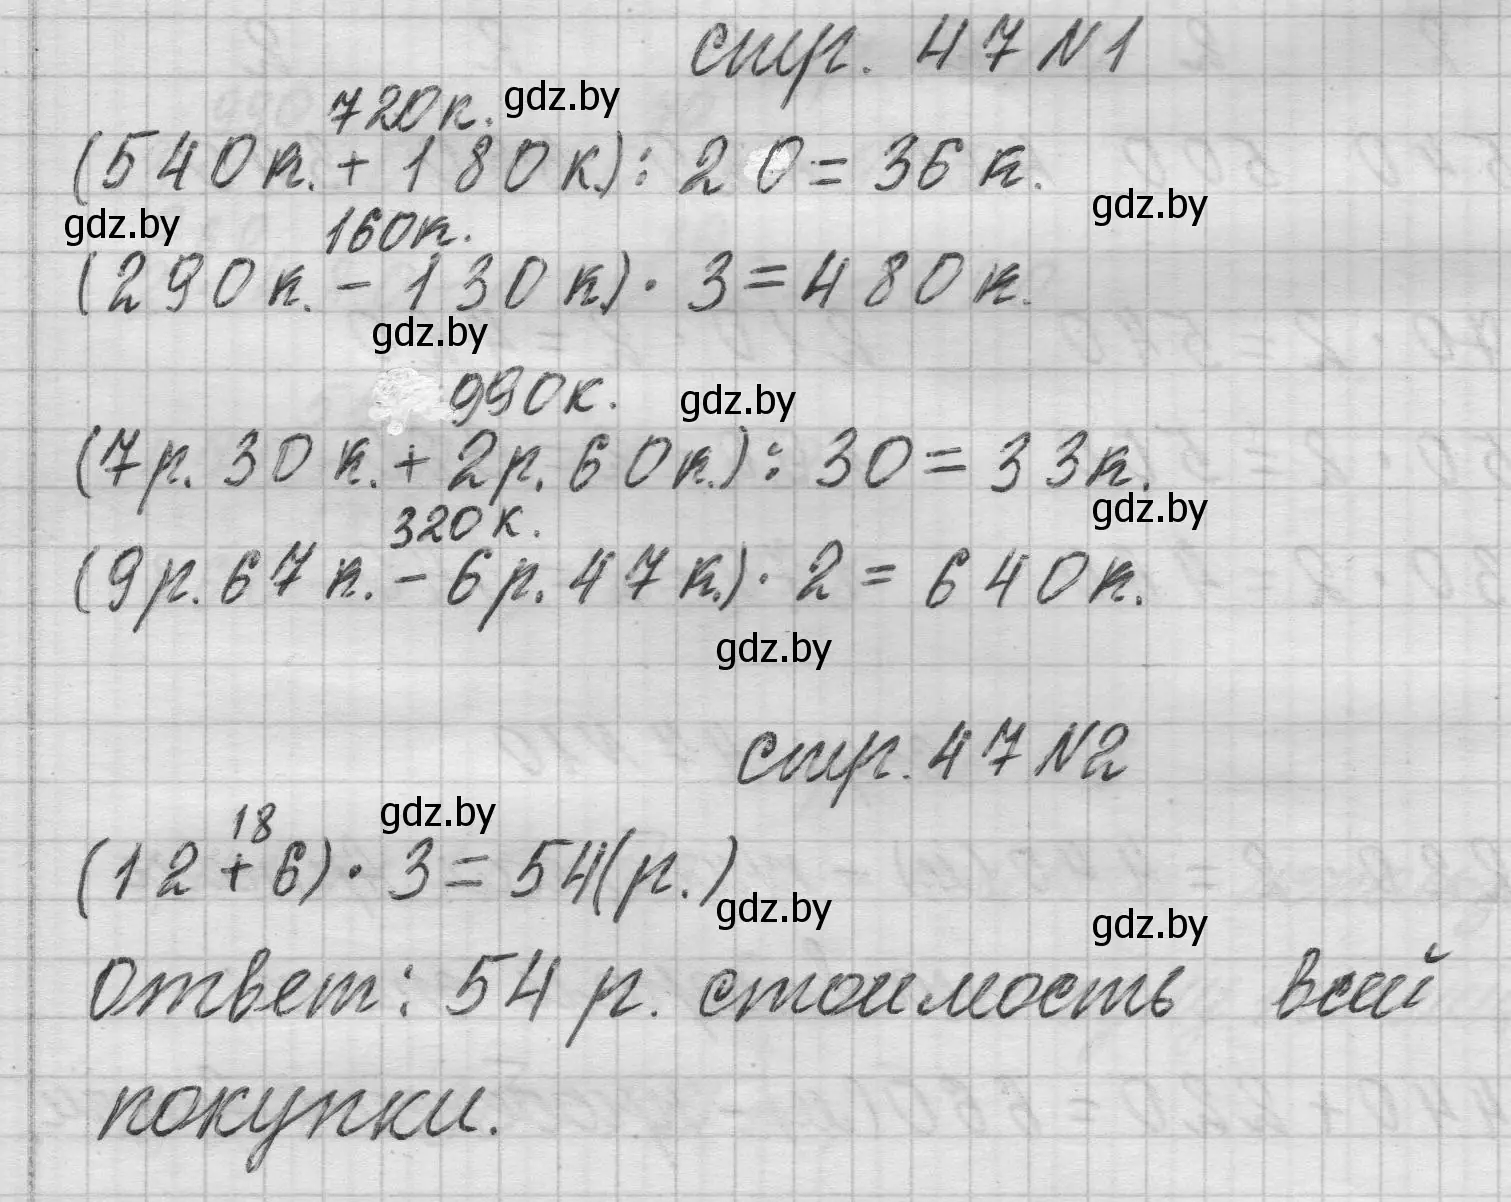 стр. 47 №1
720к. gdz.by
(540к. + 180к.) : 20 = 36 к.
gdz.by 160к. gdz.by
(290к. - 130к.) · 3 = 480к.
gdz.by
990к. gdz.by
(7р. 30 к. + 2р. 60к.) : 30 = 33к.
320 к. gdz.by
(9р. 67 к. - 6р. 47 к.) · 2 = 640к.
gdz.by
стр. 47 №2
18 gdz.by
(12 + 6) · 3 = 54(р.)
gdz.by gdz.by
Ответ: 54 р. стоимость всей
покупки.